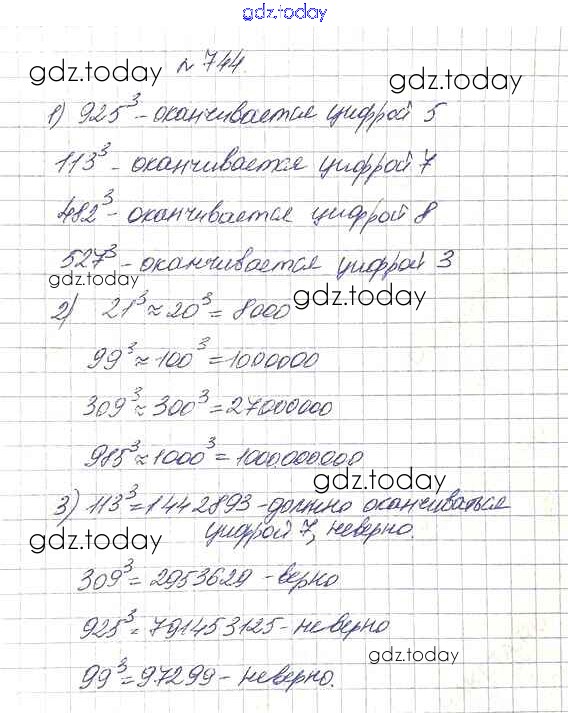 gdz.today
№ 744.
gdz.today gdz.today
1) 925³ - оканчивается цифрой 5
113³ - оканчивается цифрой 7
gdz.today gdz.today
482³ - оканчивается цифрой 8
527³ - оканчивается цифрой 3
gdz.today gdz.today
2) 21³ ≈ 20³ = 8000
99³ ≈ 100³ = 1000000
309³ ≈ 300³ = 27000000
985³ ≈ 1000³ = 1000.000.000
gdz.today
3) 113³ = 1442893 - должно оканчиваться
цифрой 7, неверно.
gdz.today
309³ = 2953629 - верно
925³ = 791453125 - неверно
gdz.today
99³ = 97299 - неверно.